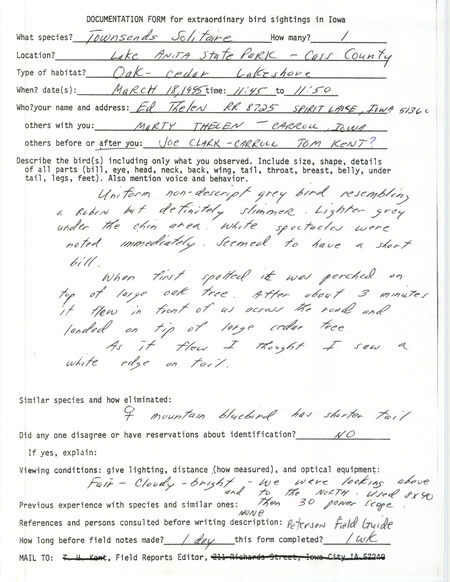 DOCUMENTATION FORM for extraordinary bird sightings in Iowa
What species? Townsends Solitaire How many? 1
Location? Lake Anita State Park - Cass County
Type of habitat? Oak - cedar Lakeshore
When? date(s): March 18, 1995 time: 11:45 to 11:50
Who? your name and address: Ed Thelen RR 8725 Spirit Lake, Iowa 51360
others with you: Marty Thelen - Carroll, Iowa
others before or after you: Joe Clark - Carroll Tom Kent?
Describe the bird(s) including only what you observed. Include size, shape, details
of all parts (bill, eye, head, neck, back, wing, tail, throat, breast, belly, under
tail, legs, feet). Also mention voice and behavior.
Uniform non-descript grey bird resembling
a Robin but definitely slimmer. Lighter grey
under the chin area. White spectacles were
noted immediately. Seemed to have a short
bill.
When first spotted it was perched on
top of large oak tree. After about 3 minutes
it flew in front of us across the road and
landed on tip of large cedar tree.
As it flew I thought I saw a
white edge on tail.
Similar species and how eliminated:
♀ mountain bluebird has shorter tail
Did any one disagree or have reservations about identification? NO
If yes, explain:
Viewing conditions: give lighting, distance (how measured), and optical equipment:
Fair - Cloudy - bright - we were looking above
and to the North. Used 8x40
then 30 power scope.
Previous experience with species and similar ones: none
References and persons consulted before writing description: Peterson Field Guide
How long before field notes made? 1 day this form completed? 1 wk
MAIL TO: T. H. Kent, Field Reports Editor, 211 Richards Street, Iowa City IA 52240